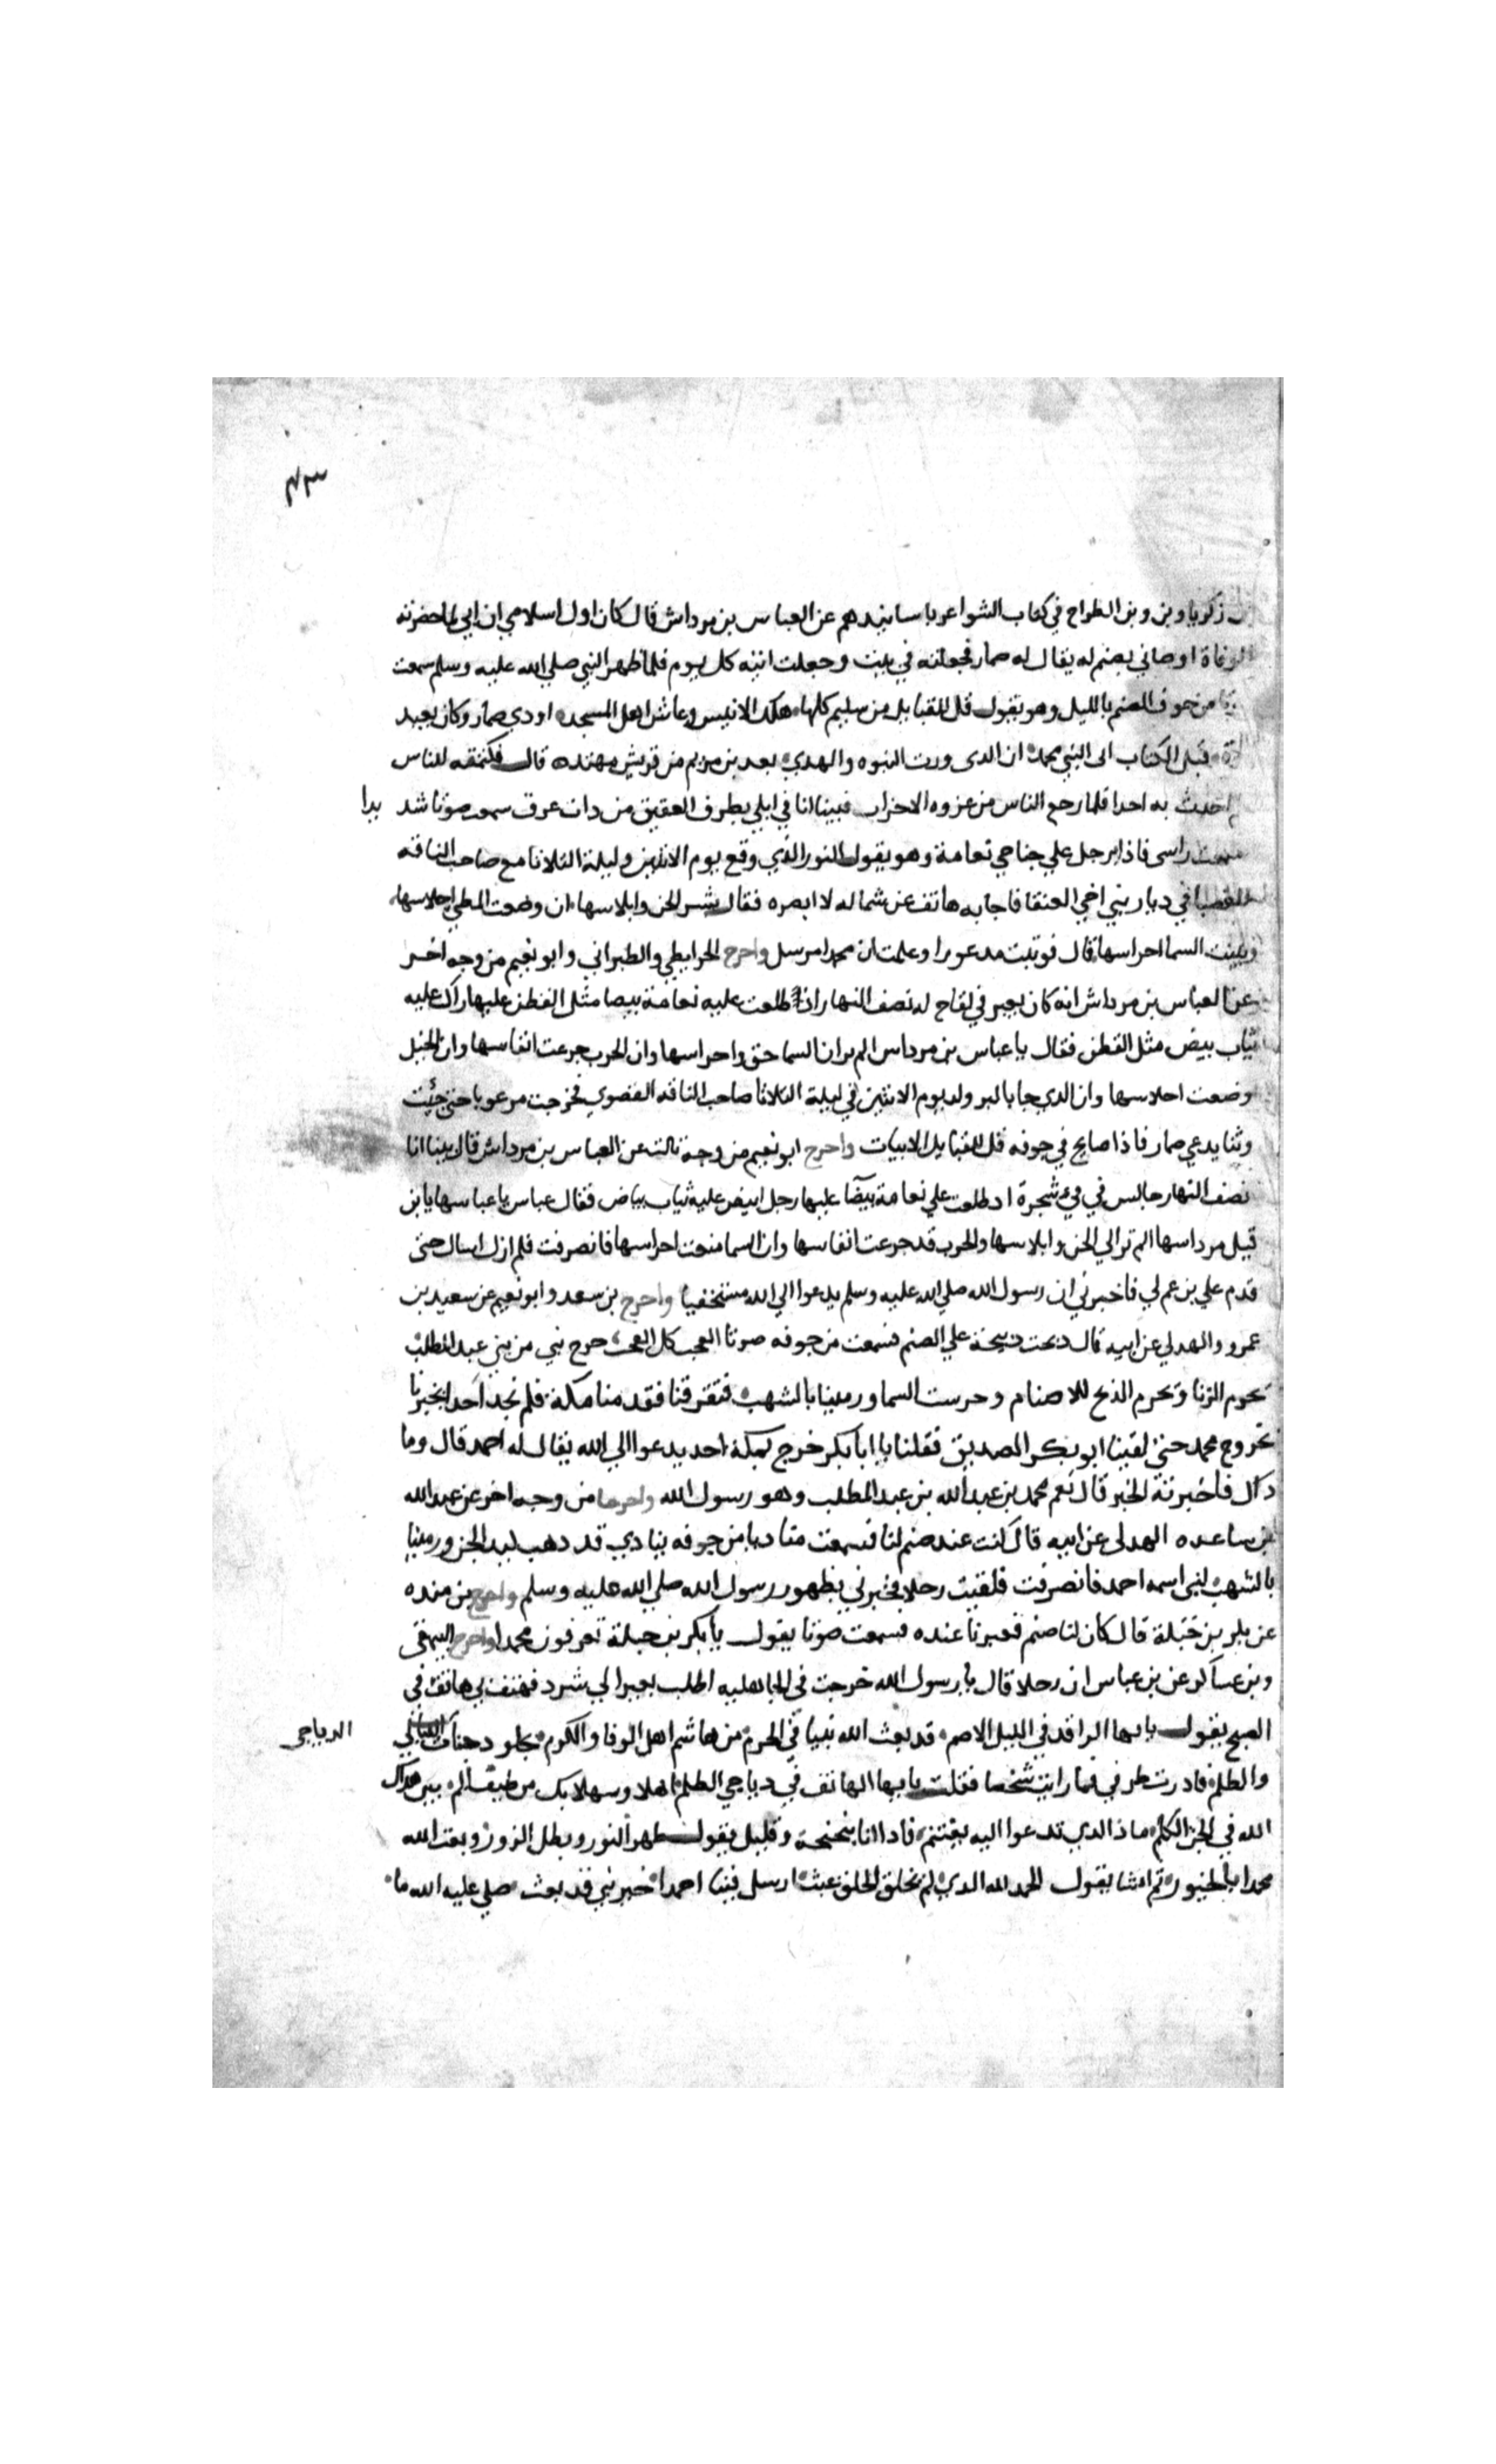 ٤٣
بن زكريا وبن وبن الطراح في كتاب الشواعر باسانيدهم عن العباس بن مرداش قال كان اول اسلامي ان ابي لما حضرته
الوفاة اوصاني بصنم له يقال له ضمار فجعلته في بيت وجعلت اتيه كل يوم فلما ظهر النبي صلي الله عليه وسلم سمعت
من جوف الصنم بالليل وهو يقول قل للقبايل من سليم كلها هلك الانيس وعاش اهل المسجد اودي ضمار وكان يعبد
قبل الكتاب الى النبي محمد ان الدى ورث النبوه والهدي بعد بن مريم من قريش مهتده قال فكتمته للناس
احدث به احدا فلما رجع الناس من غزوه الاحزاب فبينا انا في ابلي بطرف العقيق من دات عرق سمعت صوتا شد يدا
راسى فاذا برجل علي جناحي نعامة وهو يقول النور الذي وقع يوم الاثنين وليلة الثلاثا مع صاحب الناقه
في ديار بني اخي العنقا فاجابه هاتف عن شماله لا ابصره فقال بشر الجن وابلاسها ان وضعت المطي احلاسها
وبينت السما احراسها قال فوثبت مدعورا وعلمت ان محمدا مرسل واخرج الخرايطي والطبراني وابو نعيم من وجه اخر
عن العباس بن مرداش انه كان يعبر في لقاح له نصف النهار اذ طلعت عليه نعامة بيضا مثل القطن عليها راكب عليه
ثياب بيض مثل القطن فقال يا عباس بن مرداس الم تر ان السما حق واحراسها وان الحرب جرعت انفاسها وان الخيل
وضعت احلاسها وان الدي جا بالبر ولد يوم الاثنين في ليلة الثلاثا صاحب الناقه القصوي فخرجت مرعوبا حتي جئت
وثنا يدعي ضمار فاذا صايح في جوفه قل للقبايل الابيات واخرج ابو نعيم من وجه ثالث عن العباس بن مرداش قال بينا انا
نصف النهار جالس في فيء شجرة اد طلعت علي نعامة بيضا عليها رجل ابيض عليه ثياب بياض فقال عباس يا عباسها يا بن
قيل مرداسها الم تر الي الجن وابلاسها والحرب قد جرعت انفاسها وان السما منعت احراسها فانصرفت فلم ازل اسال حتى
قدم علي بن عم لي فاخبرني ان رسول الله صلي الله عليه وسلم يدعوا الي الله مستخفيا واخرج بن سعد وابو نعيم عن سعيد بن
عمرو والهدلي عن ابيه قال دبحت دبيحة علي الصنم فسمعت من جوفه صوتا العجب كل العجب خرج نبي من بني عبد المطلب
يحرم الزنا ويحرم الذبح للاصنام وحرست السما ورمينا بالشهب فتفرقنا فقدمنا مكة فلم نجد احدا يخبرنا
بخروج محمد حتى لقينا ابو بكر الصديق فقلنا يا ابا بكر خرج بمكة احد يدعوا الي الله يقال له احمد قال وما
داك فاخبرته الخبر قال نعم محمد بن عبد الله بن عبد المطلب وهو رسول الله واخرجا من وجه اخر عن عبد الله
بن ساعده الهدلى عن ابيه قال كنت عند صنم لنا فسمعت مناديا من جوفه ينادي قد دهب كيد الجن ورمينا
بالشهب لنبي اسمه احمد فانصرفت فلقيت رجلا فخبرني بظهور رسول الله صلي الله عليه وسلم واخرج بن منده
عن بكر بن جبلة قال كان لنا صنم فعبرنا عنده فسمعت صوتا يقول يا بكر بن جبلة تعرفون محمدا واخرج البيهقى
وبن عساكر عن بن عباس ان رجلا قال يا رسول الله خرجت في الجاهليه اطلب بعيرا لي شرد فهتف بي هاتف في
الصبح يقول يا يها الراقد في الليل الاصم قد بعث الله نبيا في الحرم من هاشم اهل الوفا والكرم يجلو دجنات الليالي الدياجي
والظلم فادرت طرفي فما رايت شخصا فقلت يا يها الهاتف في دياجي الظلم اهلا وسهلا بك من طيف الم بين هداك
الله في لحن الكلم ماذا الدي تدعوا اليه يغتنم فادا انا بنحنحة وقايل يقول ظهر النور وبطل الزور وبعث الله
محمدا بالحبور تم انشا يقول الحمد لله الدي لم يخلق الخلق عبث ارسل فينا احمدا خير نبي قد بعث صلي عليه الله ما